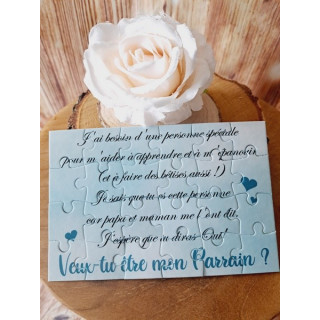 J'ai besoin d'une personne spéciale
pour m'aider à apprendre et à m'épanouir
(et à faire des bêtises aussi !)
Je sais que tu es cette personne
car papa et maman me l'ont dit.
J'espère que tu diras Oui!
Veux-tu être mon Parrain ?